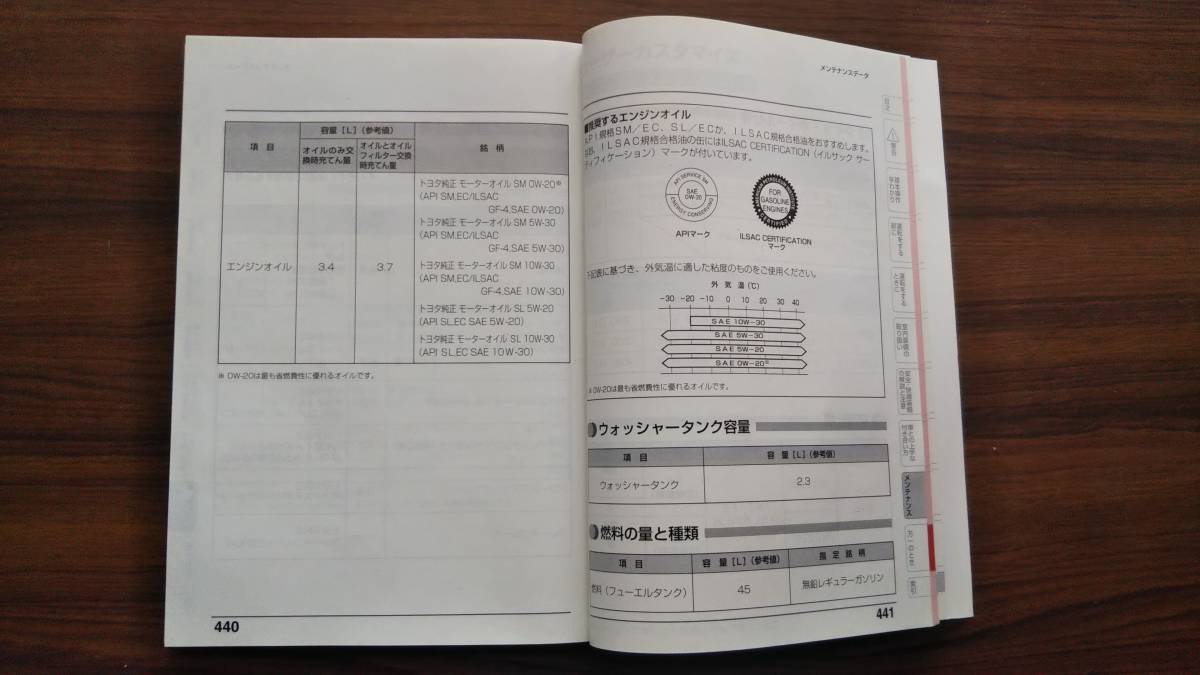 項 目
容量[L](参考値)
オイルのみ交
換時充てん量
オイルとオイル
フィルター交換
時充てん量
銘 柄
エンジンオイル
3.4
3.7
トヨタ純正 モーターオイル SM 0W-20※
(API SM,EC/ILSAC
GF-4,SAE 0W-20)
トヨタ純正 モーターオイル SM 5W-30
(API SM,EC/ILSAC
GF-4,SAE 5W-30)
トヨタ純正 モーターオイル SM 10W-30
(API SM,EC/ILSAC
GF-4,SAE 10W-30)
トヨタ純正 モーターオイル SL 5W-20
(API SL,EC SAE 5W-20)
トヨタ純正 モーターオイル SL 10W-30
(API SL,EC SAE 10W-30)
※ 0W-20は最も省燃費性に優れるオイルです。
440
メンテナンスデータ
■推奨するエンジンオイル
API規格SM/EC、SL/ECか、ILSAC規格合格油をおすすめします。
なお、ILSAC規格合格油の缶にはILSAC CERTIFICATION(イルサック サー
ティフィケーション)マークが付いています。
API SERVICE SM
SAE
0W-20
ENERGY CONSERVING
APIマーク
FOR
GASOLINE
ENGINES
CERTIFIED
ILSAC CERTIFICATION
マーク
下記表に基づき、外気温に適した粘度のものをご使用ください。
外 気 温(℃)
-30 -20 -10 0 10 20 30 40
SAE 10W-30
SAE 5W-30
SAE 5W-20
SAE 0W-20※
※ 0W-20は最も省燃費性に優れるオイルです。
ウォッシャータンク容量
項 目
容 量[L](参考値)
ウォッシャータンク
2.3
燃料の量と種類
項 目
容 量[L](参考値)
指 定 銘 柄
燃料(フューエルタンク)
45
無鉛レギュラーガソリン
441
目次
警告
基本操作
早わかり
運転をする
前に
運転をする
ときに
室内装備の
取り扱い
車との上手な
付き合い方
メンテナンス
万一のとき
索引